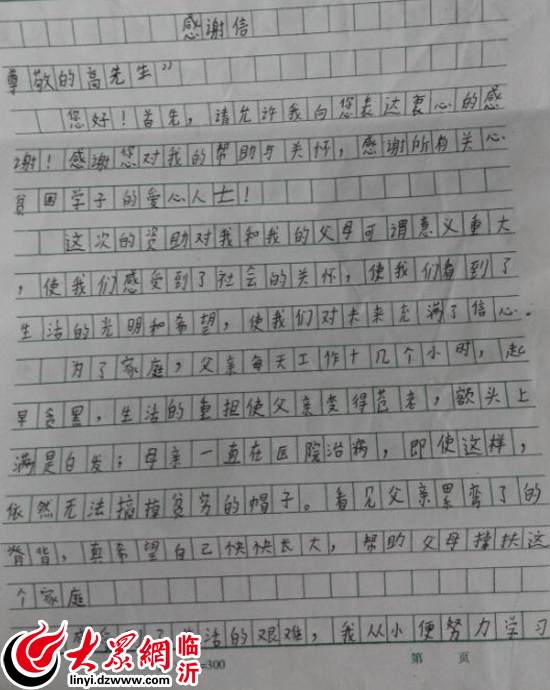 感谢信
尊敬的高先生"
您好!首先,请允许我向您表达衷心的感
谢!感谢您对我的帮助与关怀,感谢所有关心
贫困学子的爱心人士!
这次的资助对我和我的父母可谓意义重大
,使我们感受到了社会的关怀,使我们看到了
生活的光明和希望,使我们对未来充满了信心.
为了家庭,父亲每天工作十几个小时,起
早贪黑,生活的重担使父亲变得苍老,额头上
满是白发;母亲一直在医院治病,即使这样,
依然无法摘掉贫穷的帽子。看见父亲累弯了的
脊背,真希望自己快快长大,帮助父母撑扶这
个家庭
活的艰难,我从小便努力学习
大众网 临沂
linyi.dzwww.com
=300
第 页